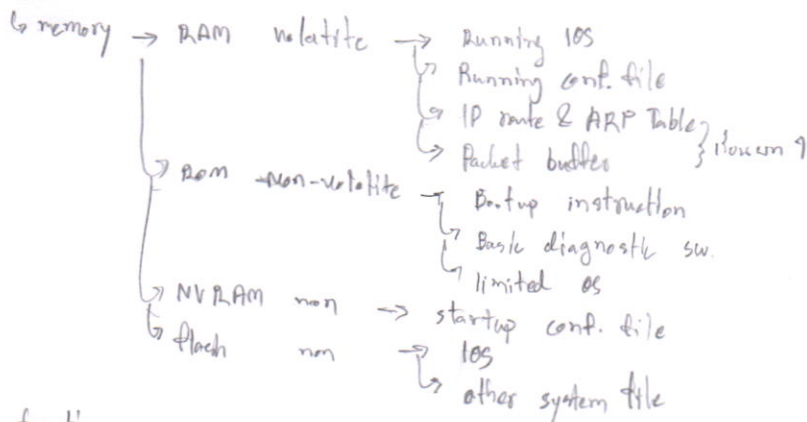 memory → RAM volatite → Running IOS
Running conf. file
IP route & ARP Table
Packet buffer
ROM Non-volatite Bootup instruction
Basic diagnostic sw.
limited OS
NVRAM non → startup conf. file
flash non → IOS
other system file